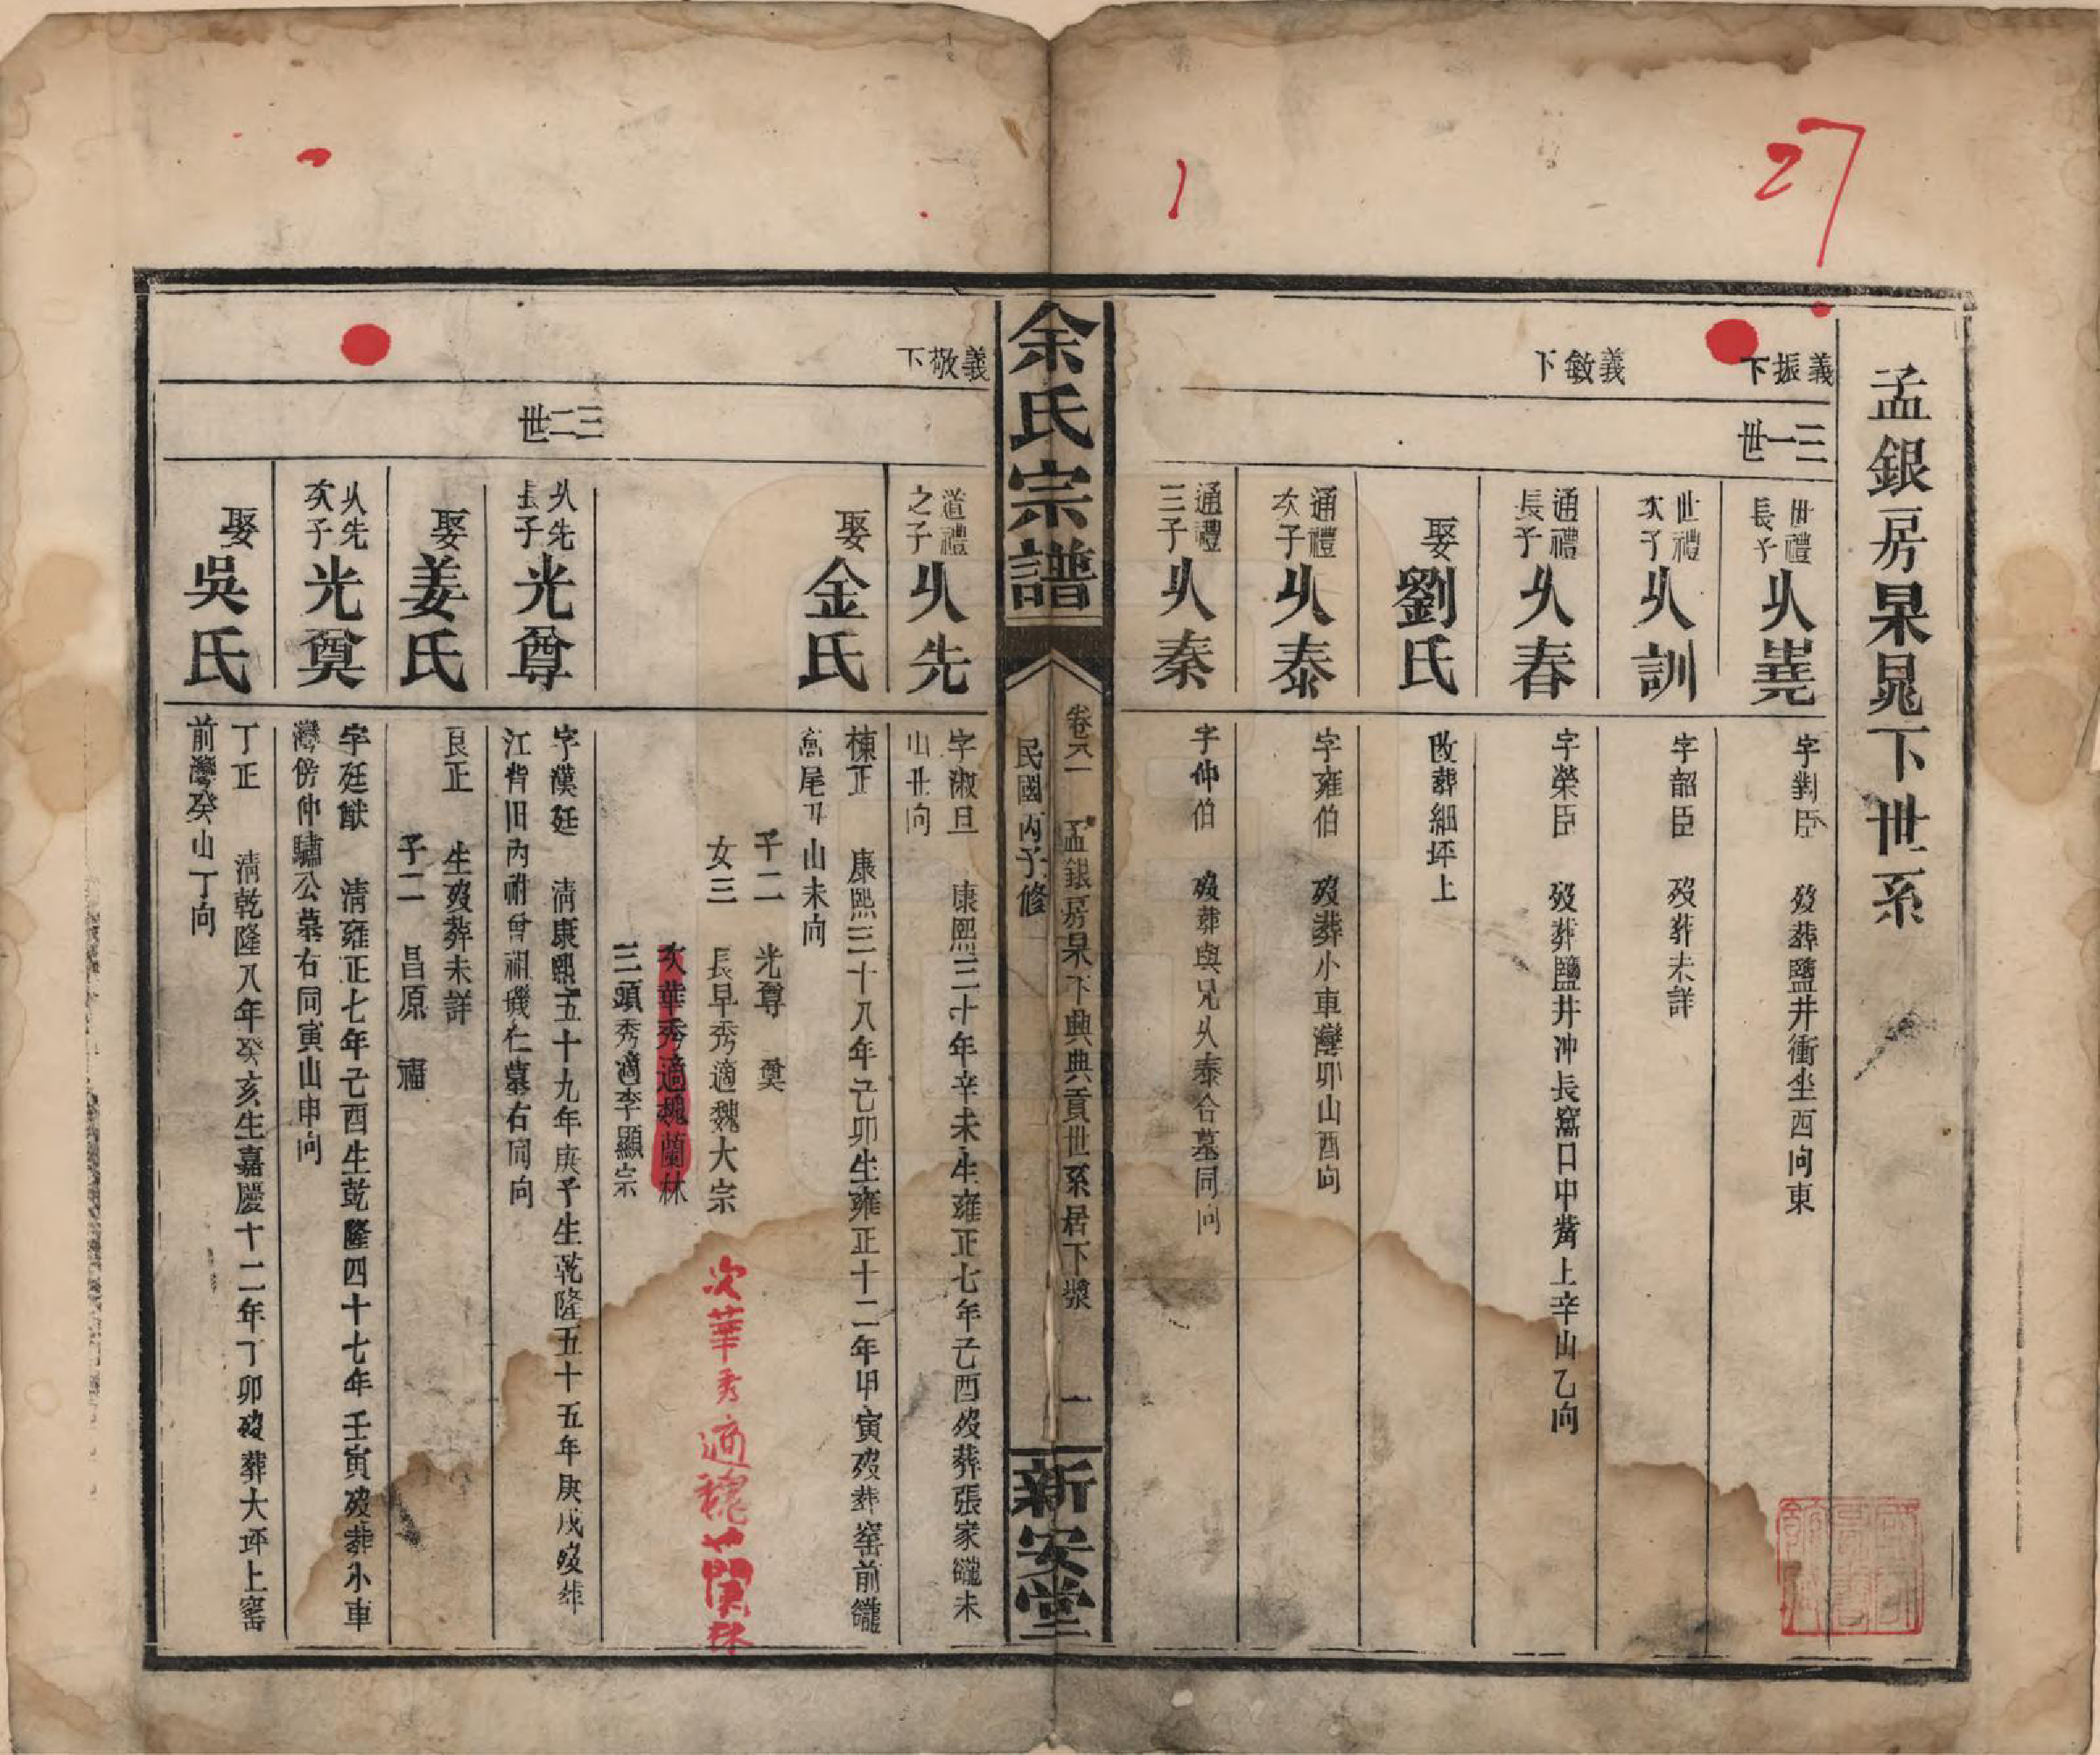 27
1
孟銀房杲晁下世系
義振下
義敏下
三一世
世禮長子 㕥㟯 字對臣 歿葬鹽井衝坐西向東
世禮次子 㕥訓 字韶臣 歿葬未詳
通禮長子 㕥春 字榮臣 歿葬鹽井冲長窩口中嘴上辛山乙向
娶劉氏 改葬細坪上
通禮次子 㕥泰 字雍伯 歿葬小車灣卯山酉向
通禮三子 㕥秦 字仲伯 歿葬與兄㕥泰合墓同向
余氏宗譜
卷八一 孟銀房杲下典典貢世系居下漿 一
民國丙子修
新安堂
義敬下
三二世
道禮之子 㕥先 字淑旦 康熙三十年辛未生雍正七年己酉歿葬張家巃未
山丑向
娶金氏 棟正 康熙三十八年己卯生雍正十二年甲寅歿葬窰前巃
窩尾丑山未向
子二 光尊 奠
女三 長早秀適魏大宗
次華秀適魏蘭林
三頭秀適李顯宗
次華秀適魏蘭林
㕥先長子 光尊 字漢廷 清康熙五十九年庚子生乾隆五十五年庚戌歿葬
江背旧内祔曾祖璣仁墓右同向
娶姜氏 良正 生歿葬未詳
子二 昌原 福
㕥先次子 光奠 字廷猷 清雍正七年己酉生乾隆四十七年壬寅歿葬小車
灣傍仲驌公墓右同寅山申向
娶吳氏 丁正 清乾隆八年癸亥生嘉慶十二年丁卯歿葬大坪上窰
前灣癸山丁向